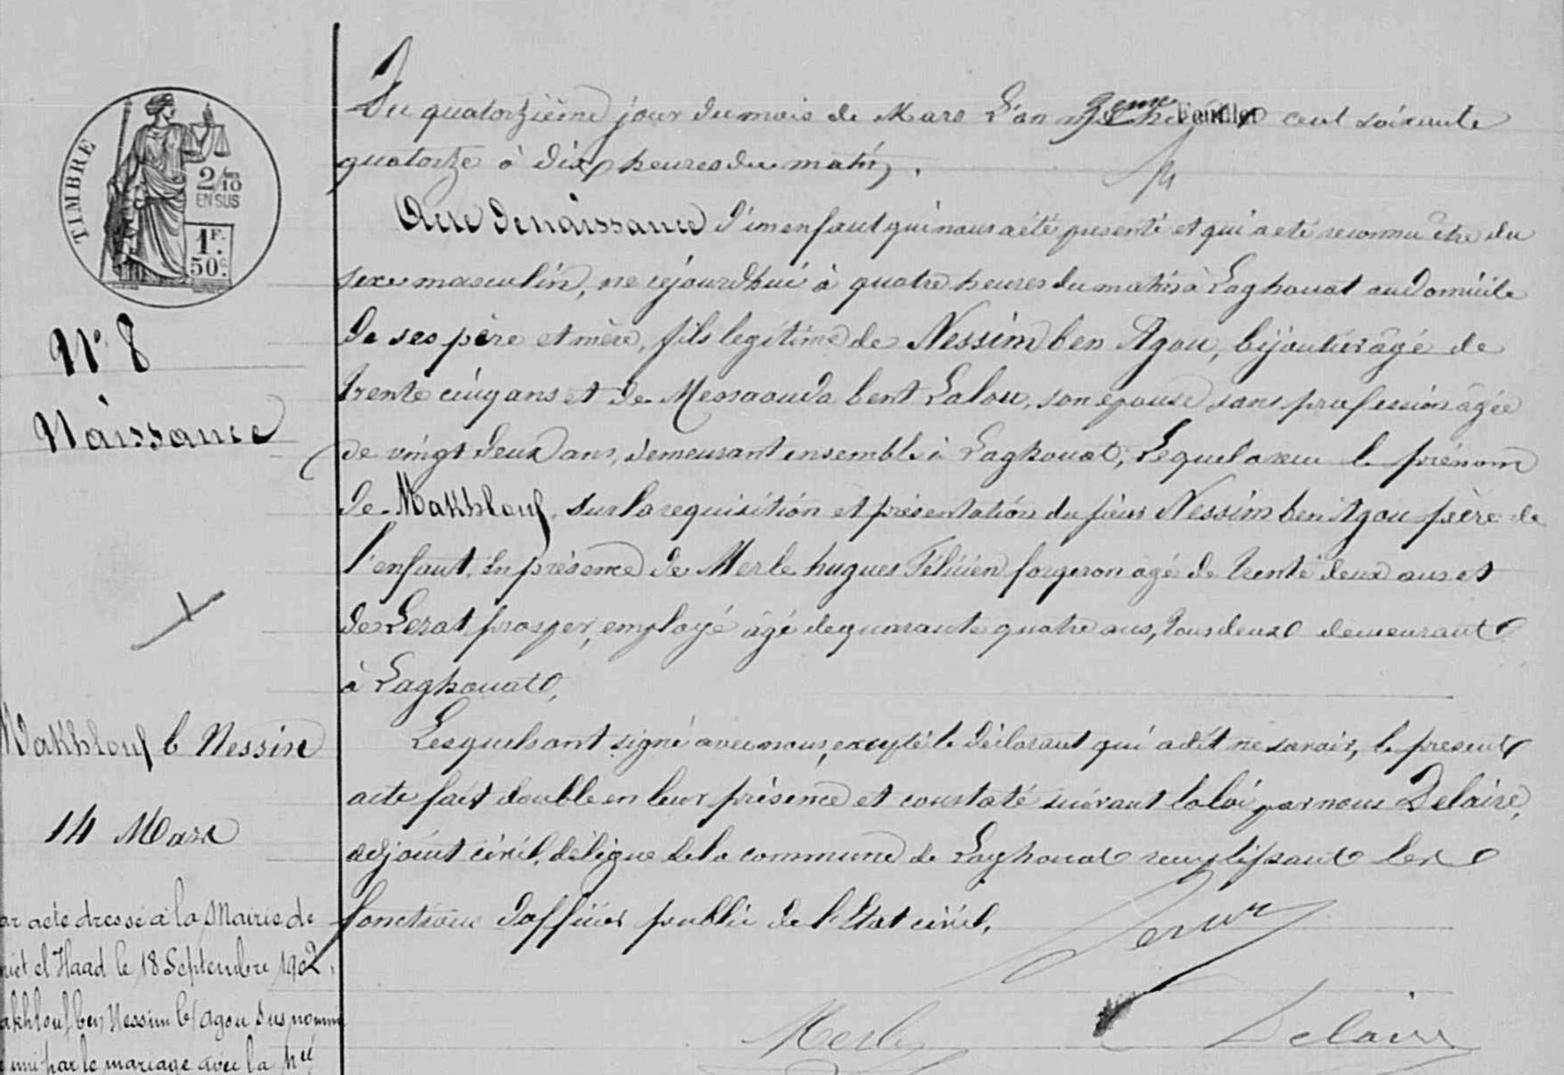 TIMBRE
2/10 EN SUS
1F. 50c.
N° 8
Naissance
Makhlouf b Nessim
14 Mars
ar acte dressé à la Mairie de
niet el Haad le 18 Septembre 1902.
akhlouf ben Nessim b/ Agou sus nommé
uni par le mariage avec la née
Du quatorzième jour du mois de Mars L'an mil huit cent soixante
2eme Feuillet
quatorze à dix heures du matin.
Acte de naissance d'un enfant qui nous a été presenté et qui a été reconnu être du
sexe masculin, né cejourd'hui à quatre heures du matin à Laghouat au domicile
de ses père et mère, fils legitime de Nessim ben Agou, bijoutier âgé de
trente cinq ans et de Messaouda bent Lalou, son épouse sans profession âgée
de vingt deux ans, demeurant ensemble à Laghouat; Lequel a reçu le prénom
de Makhlouf, sur la requisition et présentation du sieur Nessim ben Agou père de
l'enfant. En présence de Merle hugues Félicien forgeron âgé de trente deux ans et
de Lerat prosper, employé âgé de quarante quatre ans, tous deux demeurant
à Laghouat,
Lesquels ont signé avec nous, excepté le déclarant qui a dit ne savoir, le present
acte fait double en leur présence et constaté suivant la loi par nous Delaire,
adjoint civil, délégué de la commune de Laghouat remplissant les
fonctions d'officier public de l'Etat civil.
Merle
Delaire